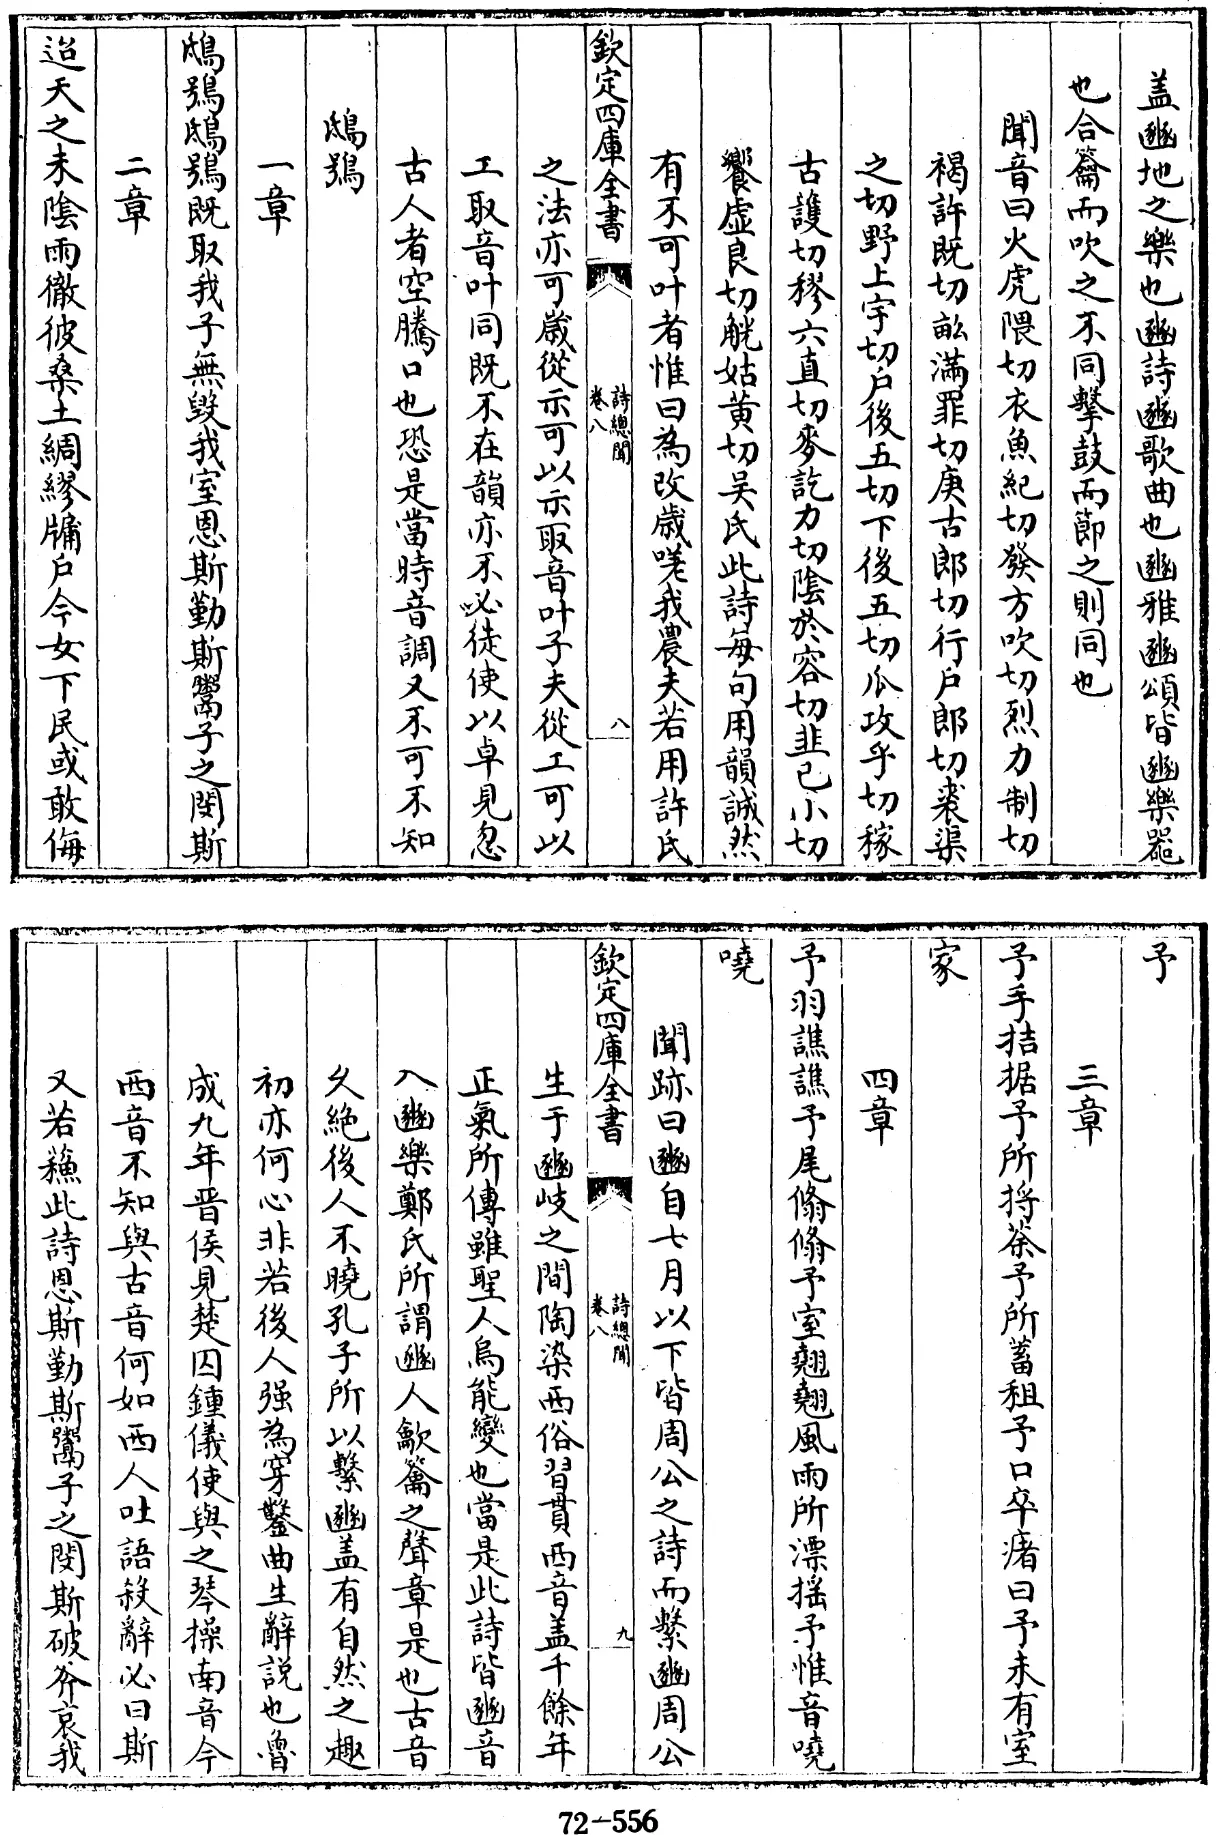 蓋豳地之樂也豳詩豳歌曲也豳雅豳頌皆豳樂器
也合籥而吹之不同擊鼓而節之則同也
聞音曰火虎隈切衣魚紀切發方吹切烈力制切
褐許既切畝滿罪切庚古郎切行戶郎切裘渠
之切野上宇切戶後五切下後五切瓜攻乎切稼
古護切穋六直切麥訖力切陰於容切韭已小切
饗虛良切觥姑黃切吳氏此詩每句用韻誠然
有不可叶者惟曰為改歲嗟我農夫若用許氏
欽定四庫全書
詩總聞
卷八
八
之法亦可歲從示可以示取音叶子夫從工可以
工取音叶同既不在韻亦不必徒使以卓見忽
古人者空騰口也恐是當時音調又不可不知
鴟鴞
一章
鴟鴞鴟鴞既取我子無毀我室恩斯勤斯鬻子之閔斯
二章
迨天之未陰雨徹彼桑土綢繆牖戶今女下民或敢侮
予
三章
予手拮据予所捋荼予所蓄租予口卒瘏曰予未有室
家
四章
予羽譙譙予尾翛翛予室翹翹風雨所漂搖予惟音嘵
嘵
聞跡曰豳自七月以下皆周公之詩而繫豳周公
欽定四庫全書
詩總聞
卷八
九
生于豳岐之間陶染西俗習貫西音蓋千餘年
正氣所傳雖聖人烏能變也當是此詩皆豳音
入豳樂鄭氏所謂豳人龡籥之聲章是也古音
久絕後人不曉孔子所以繫豳蓋有自然之趣
初亦何心非若後人强為穿鑿曲生辭說也魯
成九年晉侯見楚囚鍾儀使與之琴操南音今
西音不知與古音何如西人吐語殺辭必曰斯
又若蘓此詩恩斯勤斯鬻子之閔斯破斧哀我
72-556